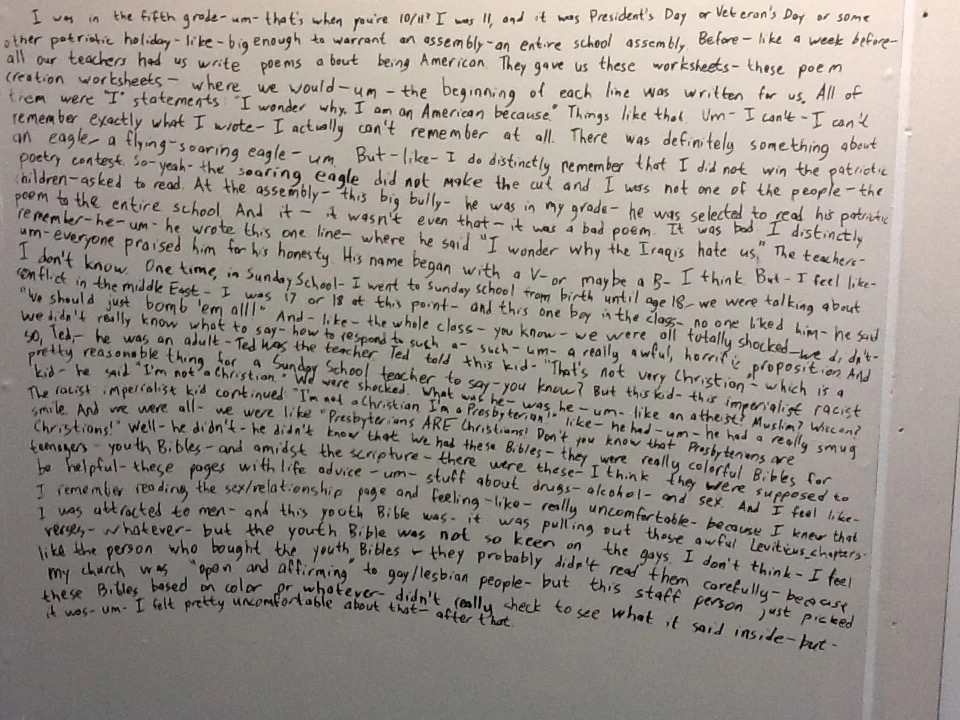 I was in the fifth grade-um-that's when you're 10/11? I was 11, and it was President's Day or Veteran's Day or some
other patriotic holiday-like-big enough to warrant an assembly-an entire school assembly. Before-like a week before-
all our teachers had us write poems about being American. They gave us these worksheets-those poem
creation worksheets- where we would-um-the beginning of each line was written for us. All of
them were "I" statements: "I wonder why. I am an American because." Things like that. Um-I can't-I can't
remember exactly what I wrote-I actually can't remember at all. There was definitely something about
an eagle-a flying-soaring eagle-um. But-like-I do distinctly remember that I did not win the patriotic
poetry contest. So-yeah-the soaring eagle did not make the cut and I was not one of the people-the
children-asked to read. At the assembly-this big bully-he was in my grade-he was selected to read his patriotic
poem to the entire school. And it-it wasn't even that-it was a bad poem. It was bad. I distinctly
remember-he-um-he wrote this one line-where he said "I wonder why the Iraqis hate us." The teachers-
um-everyone praised him for his honesty. His name began with a V-or maybe a B-I think. But-I feel like-
I don't know. One time, in Sunday School-I went to Sunday school from birth until age 18-we were talking about
conflict in the middle East-I was 17 or 18 at this point-and this one boy in the class-no one liked him-he said
"We should just bomb 'em all!" And-like-the whole class-you know-we were all totally shocked-we didn't-
we didn't really know what to say-how to respond to such a-such-um-a really awful, horrific proposition. And
so, Ted,-he was an adult-Ted was the teacher. Ted told this kid-"That's not very Christian-which is a
pretty reasonable thing for a Sunday School teacher to say-you know? But this kid-this imperialist racist
kid-he said "I'm not a Christian." We were shocked. What was he-was he-um-like an atheist? Muslim? Wiccan?
The racist imperialist kid continued "I'm not a Christian I'm a Presbyterian." like-he had-um-he had a really smug
smile. And we were all-we were like "Presbyterians ARE Christians! Don't you know that Presbyterians are
Christians!" Well-he didn't-he didn't know that we had these Bibles-they were really colorful Bibles for
teenagers-youth Bibles-and amidst the scripture-there were these-I think they were supposed to
be helpful-these pages with life advice-um-stuff about drugs-alcohol-and sex. And I feel like-
I remember reading the sex/relationship page and feeling-like-really uncomfortable-because I knew that
I was attracted to men-and this youth Bible was-it was pulling out those awful Leviticus chapters-
verses-whatever-but the youth Bible was not so keen on the gays. I don't think-I feel
like the person who bought the youth Bibles-they probably didn't read them carefully-because
my church was "open and affirming" to gay/lesbian people-but this staff person just picked
these Bibles based on color or whatever-didn't really check to see what it said inside-but-
it was-um-I felt pretty uncomfortable about that-after that.